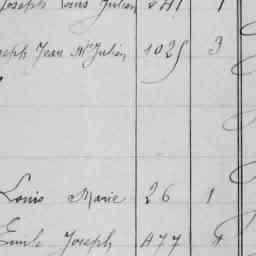 Joseph Louis Julian 1
Joseph Jean Mie Julien 1025 3
Louis Marie 26 1
Emile Joseph 477